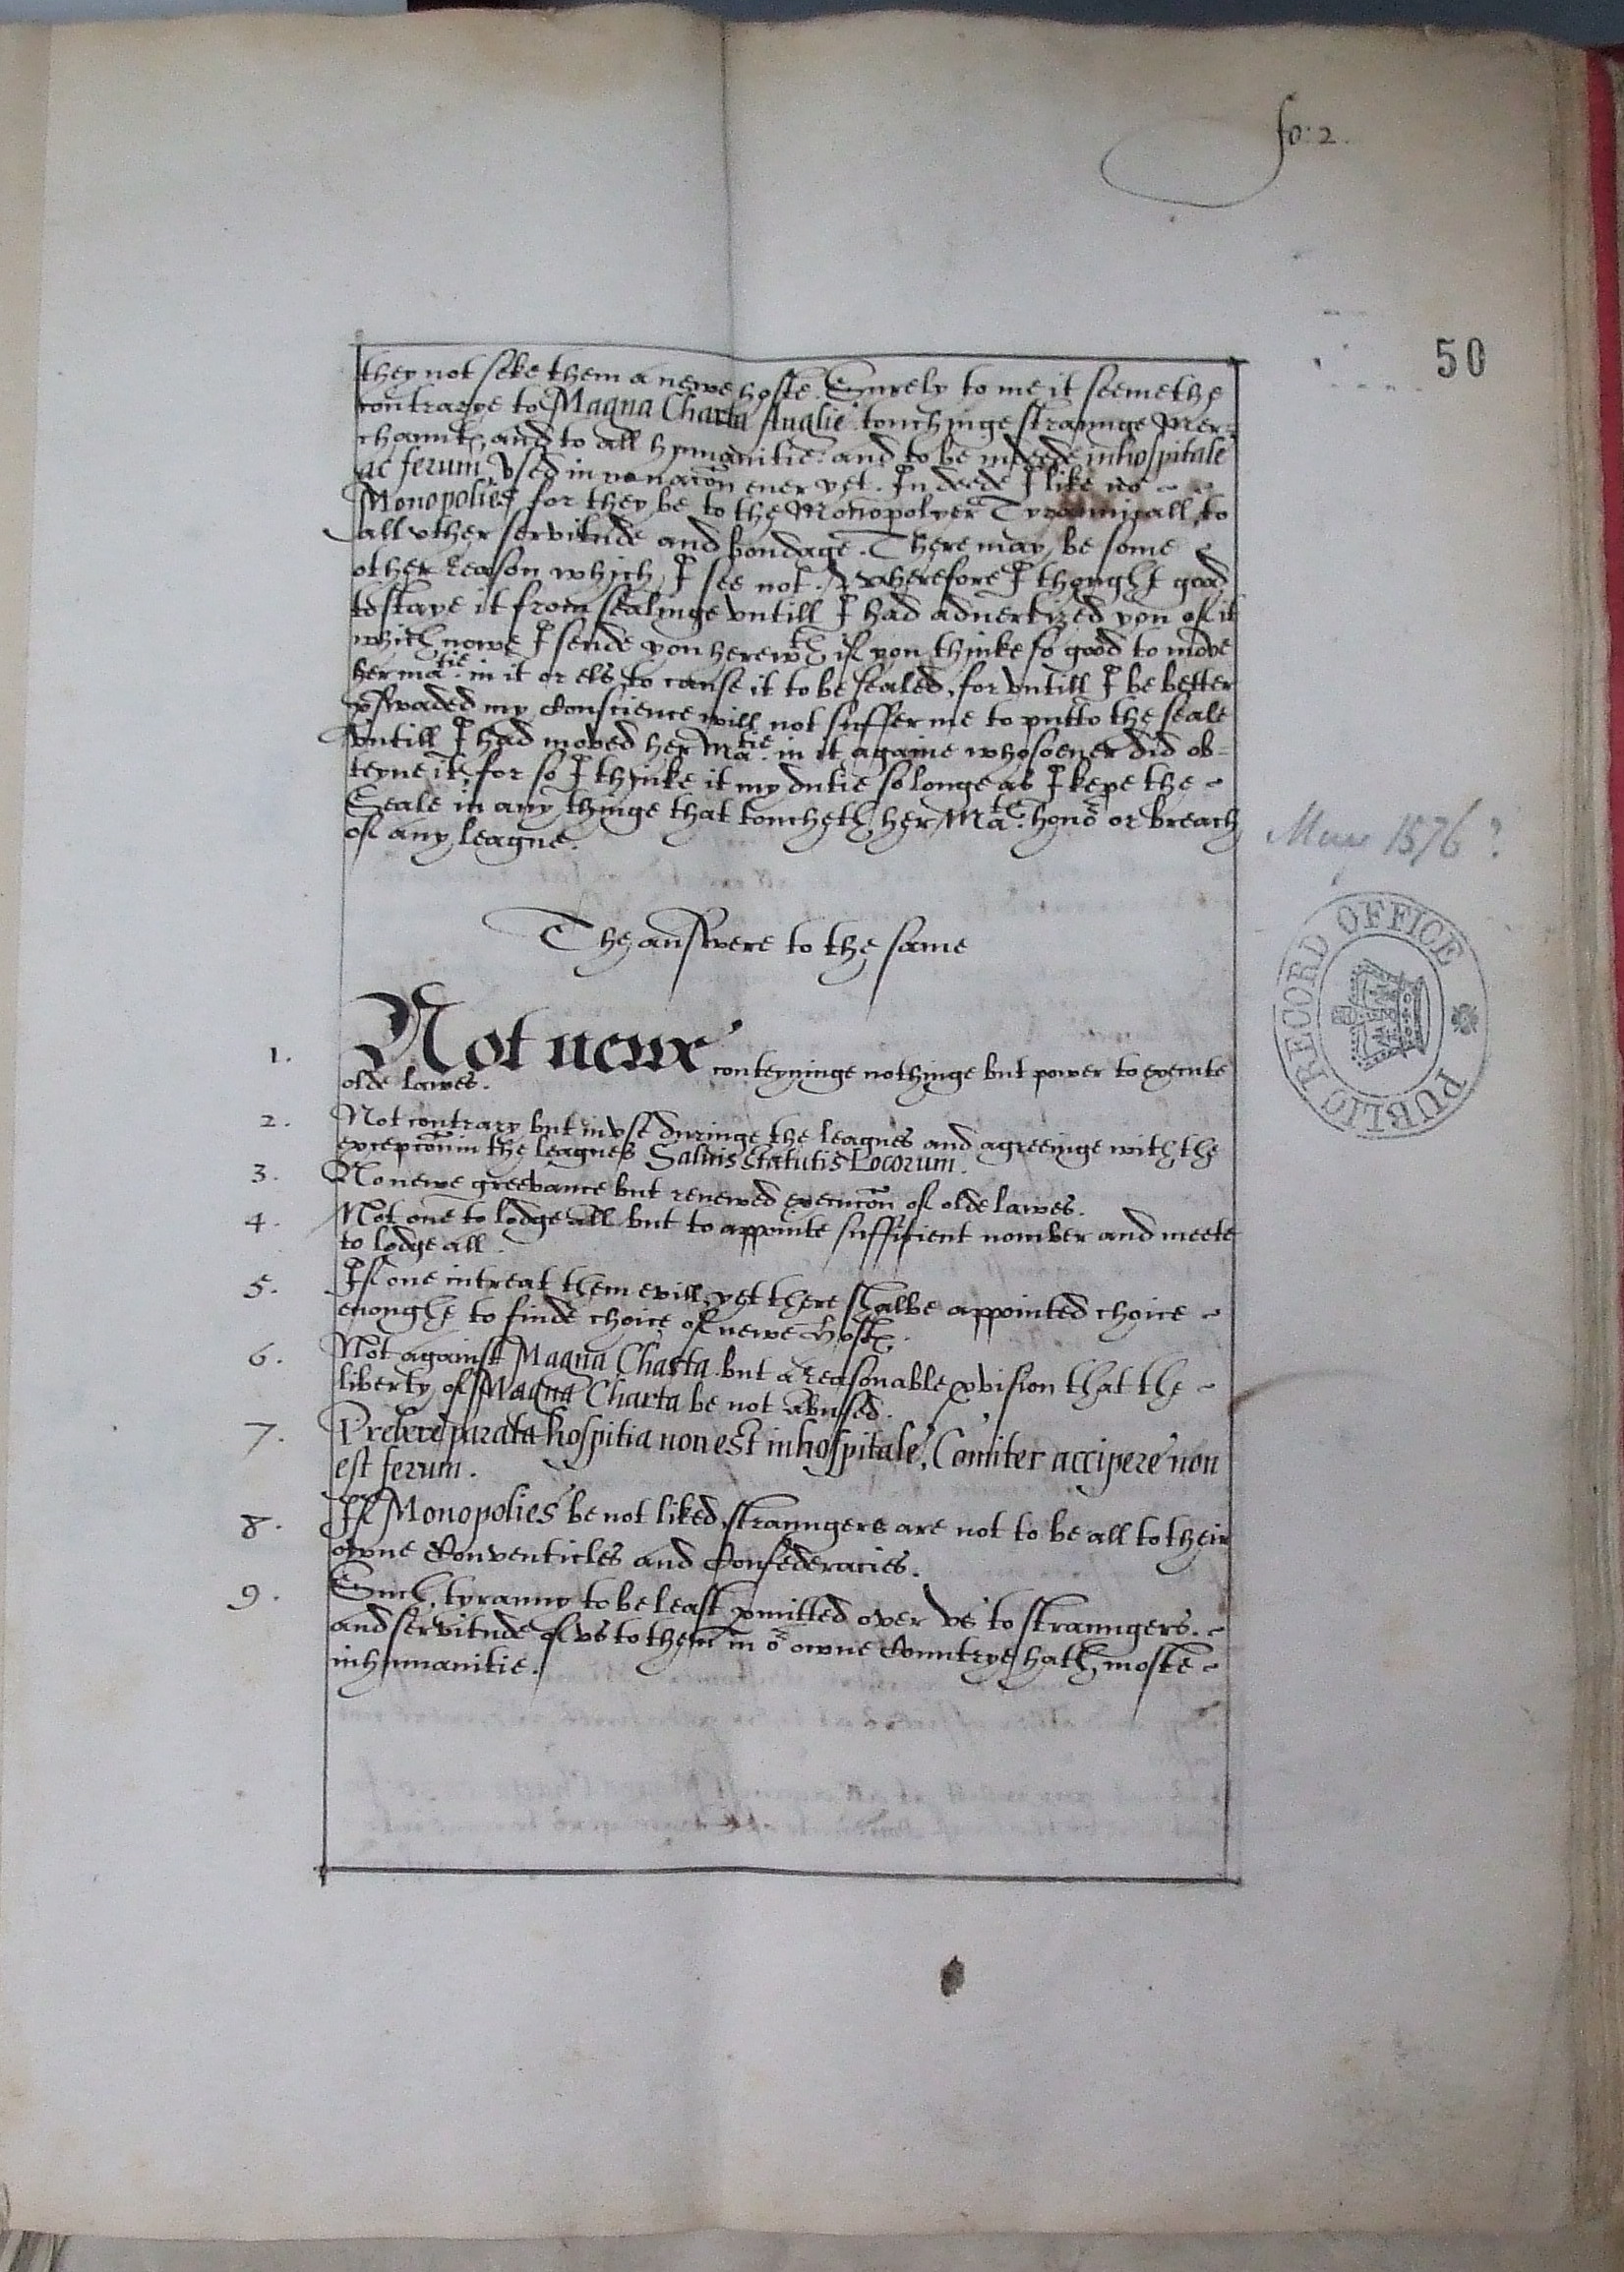 fo: 2.
50
they not seke them a newe hoste. Surely to me it seemethe
contrarye to Magna Charta Anglie touchinge straunge Mer=
chaunt(es), and to all humanitie: and to be indeede inhospitale
ac ferum, Vsed in no nac̃on euer yet. In deede I like no
Monopolies for they be to the Monopolyer Tyrannicall, to
all other servitude and bondage. There may be some
other reason which I see not. Wherefore I thought good
to staye it from sealinge vntill I had aduertized you of it
which nowe I sende you herewth, if you thinke so good to move
her matie. in it or els to cause it to be sealed, for vntill I be better
p̱swaded my Conscience will not suffer me to putto the seale
vntill I had moved her Matie. in it againe whosoeuer did ob=
teyne it, for so I thinke it my dutie so longe as I kepe the
Seale in any thinge that toucheth her Mate. honor or breach
of any league.
May 1576?
The answere to the same
PUBLIC RECORD OFFICE
1. Not newe conteyninge nothinge but power to execute
olde lawes.
2. Not contrary but in vse duringe the leagues and agreeinge with the
excepc̃on in the leagues Saluis statutis Locorum.
3. No newe greevance but renewed execuc̃on of olde lawes.
4. Not one to lodge all but to appointe sufficient nomber and meete
to lodge all.
5. If one intreat them evill, yet there shalbe appointed choice
enoughe to finde choice of newe host(es).
6. Not against Magna Charta but a reasonable p̱vision that the
liberty of Magna Charta be not abused.
7. Prebere parata hospitia non est inhospitale, Comiter accipere non
est ferum.
8. If Monopolies be not liked, straungers are not to be all to their
owne Conventicles and Confederacies.
9. Such tyranny to be least p̱mitted over vs to straungers.
and servitude of vs to them in or owne Countrye hath moste
inhumanitie.